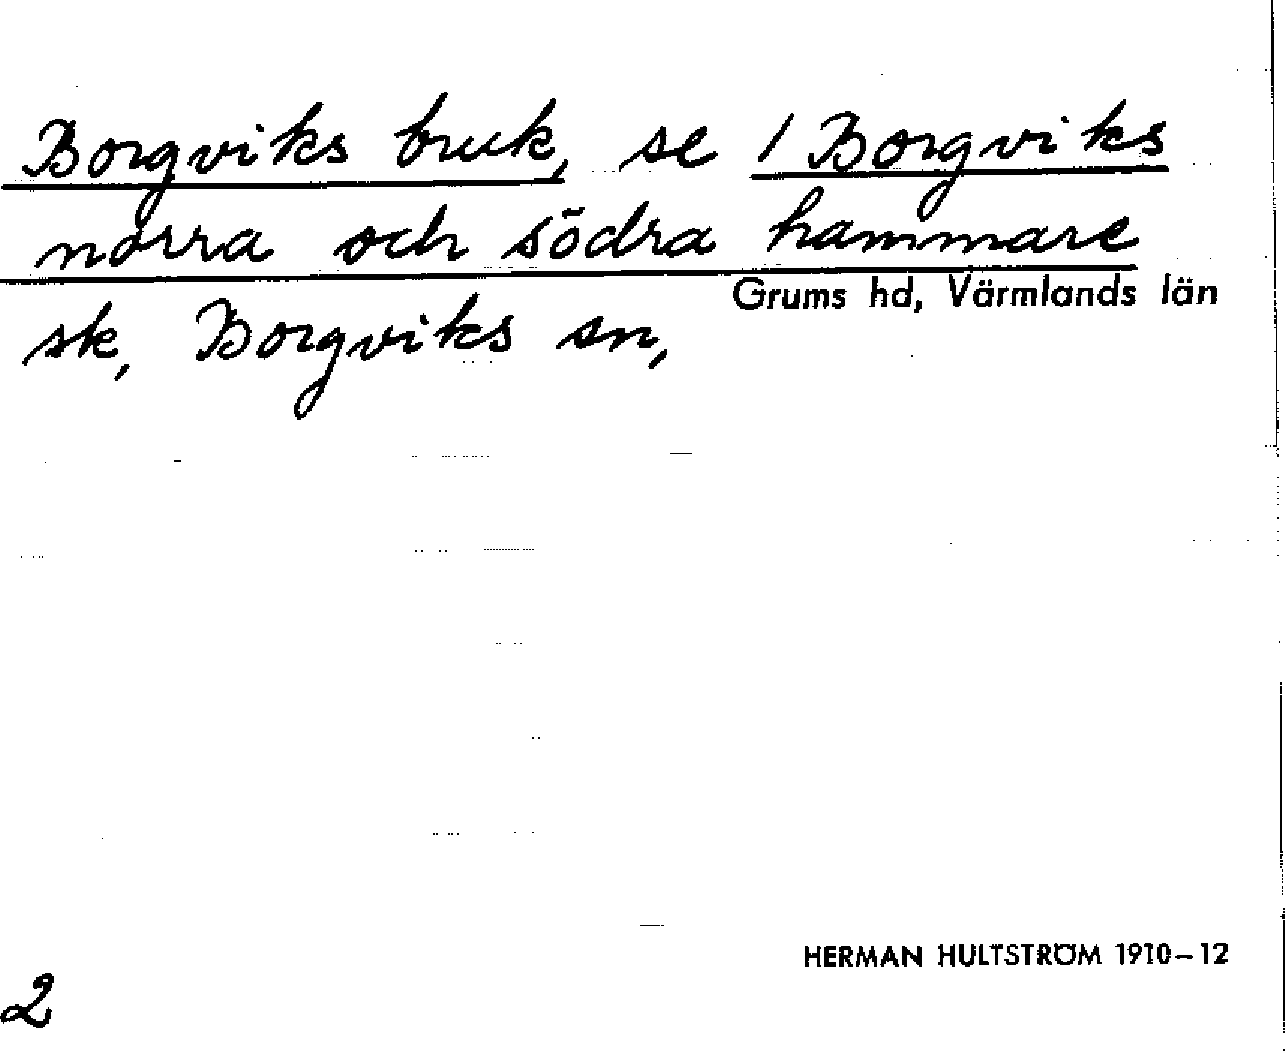 Borgviks bruk, se 1 Borgviks
norra och södra hammare
Grums hd, Värmlands län
sk, Borgviks sn,
HERMAN HULTSTRÖM 1910–12
2